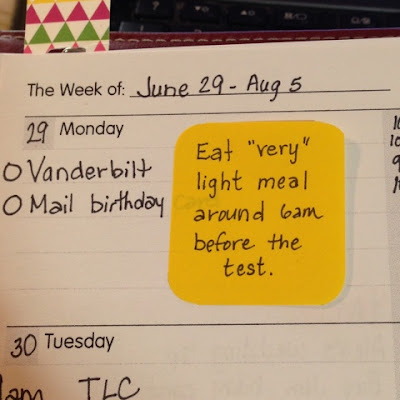 The Week of: June 29 - Aug 5
29 Monday
O Vanderbilt
O Mail birthday card
Eat "very"
light meal
around 6am
before the
test.
30 Tuesday
TLC